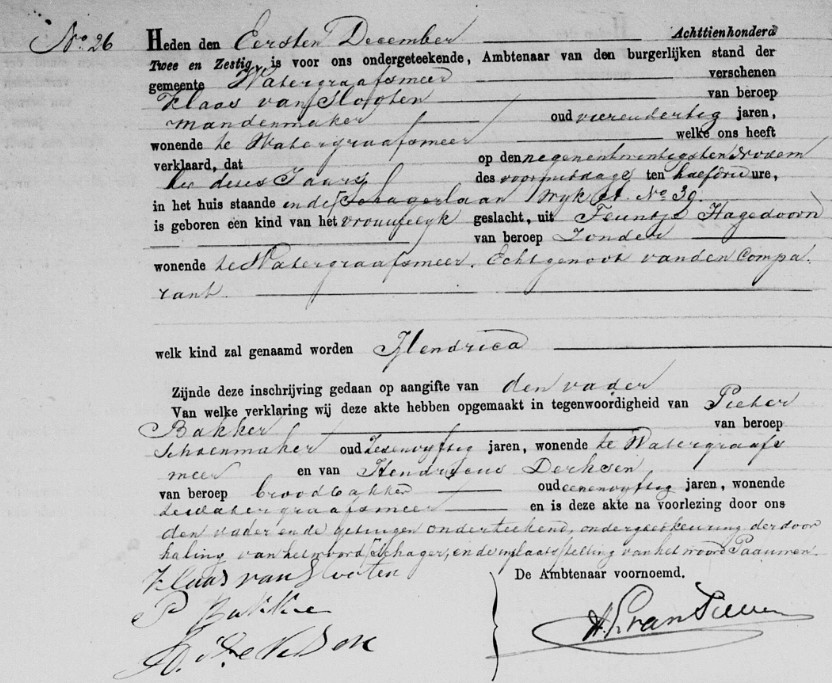 No. 26 Heden den Eersten December Achttienhonderd
Twee en Zestig, is voor ons ondergeteekende, Ambtenaar van den burgerlijken stand der
gemeente Watergraafsmeer verschenen
Klaas van Slooten van beroep
mandenmaker oud vierendertig jaren,
wonende te Watergraafsmeer welke ons heeft
verklaard, dat op den negenentwintigsten Novem
ber dezes Jaars des voormiddags ten half drie ure,
in het huis staande in de Schagerlaan Wyk No 39
is geboren een kind van het vrouwelyk geslacht, uit Hagedoorn
van beroep Zonder
wonende te Watergraafsmeer, Echtgenoot van den Compa
rant.
welk kind zal genaamd worden Hendrica
Zijnde deze inschrijving gedaan op aangifte van den vader
Van welke verklaring wij deze akte hebben opgemaakt in tegenwoordigheid van Pieter
Bakker van beroep
Schoenmaker oud zesenvyftig jaren, wonende te Watergraafs
meer en van Hendricus Derksen
van beroep broodbakker oud eenenvyftig jaren, wonende
te Watergraafsmeer en is deze akte na voorlezing door ons
den vader en de getuigen onderteekend, onder goedkeuring der door
haling van het woord Schager, en de inplaatsstelling van het woord
Klaas van Slooten
De Ambtenaar voornoemd.
P Bakker